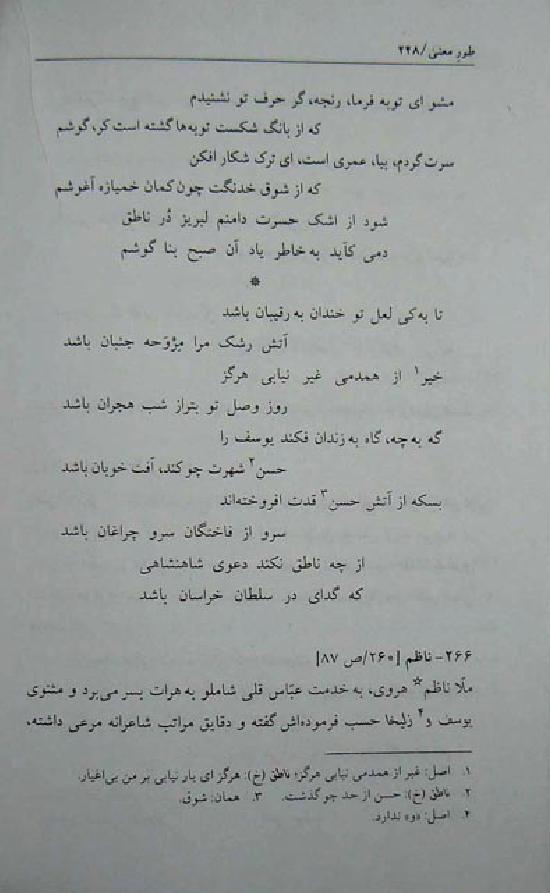 طور معنی/ ۲۴۸
مشو ای توبه فرما، رنجه، گر حرف تو نشنیدم
که از بانگ شکست توبه‌ها گشته است کر، گوشم
سرت گردم، بیا، عمری است، ای ترک شکار افکن
که از شوق خدنگت چون کمان خمیازه آغوشم
شود از اشک حسرت دامنم لبریز دُر ناطق
دمی کآید به خاطر یاد آن صبح بنا گوشم
*
تا به کی لعل تو خندان به رقیبان باشد
آتش رشک مرا مِرْوَحه جنبان باشد
خیر۱ از همدمی غیر نیابی هرگز
روز وصل تو بتراز شب هجران باشد
گه به چه، گاه به زندان فکند یوسف را
حسن۲ شهرت چو کند، آفت خوبان باشد
بسکه از آتش حسن۳ قدت افروخته‌اند
سرو از فاختگان سرو چراغان باشد
از چه ناطق نکند دعوی شاهنشاهی
که گدای در سلطان خراسان باشد
۲۶۶- ناظم [۲۶۰/ص ۸۷]
ملّا ناظم☆ هروی، به خدمت عبّاس قلی شاملو به هرات بسر می‌برد و مثنوی
یوسف و۴ زلیخا حسب فرموده‌اش گفته و دقایق مراتب شاعرانه مرعی داشته،
۱. اصل: غیر از همدمی نیابی هرگز؛ ناطق (خ): هرگز ای یار نیابی بر من بی‌اغیار.
۲. ناطق (خ): حسن از حد چو گذشت. ۳. همان: شوق.
۴. اصل: «و» ندارد.